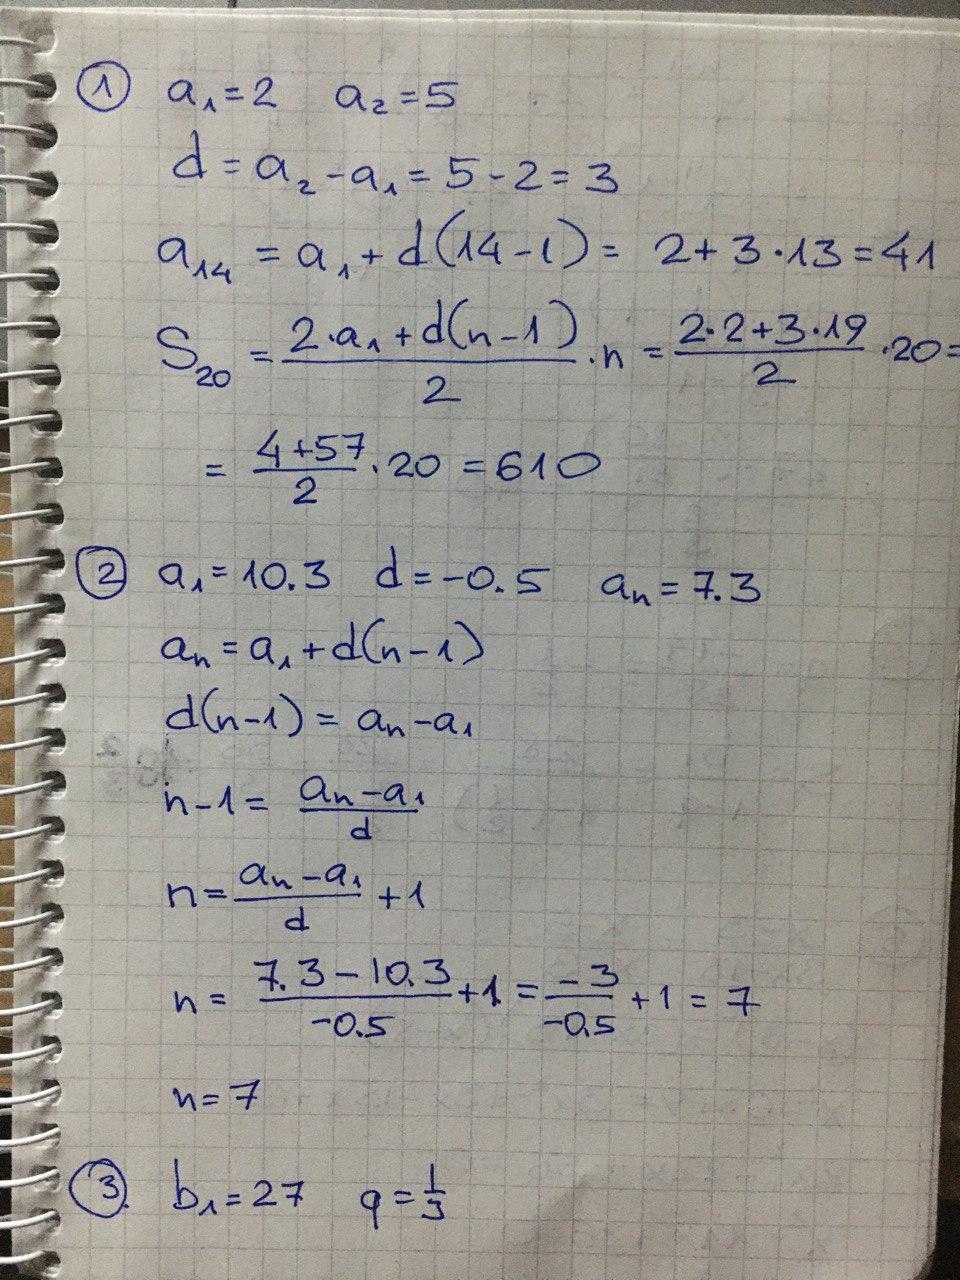 ① a₁=2 a₂=5
d = a₂-a₁ = 5-2 = 3
a₁₄ = a₁ + d(14-1) = 2+3·13=41
S₂₀ = (2·a₁+d(n-1))/2 ·n = (2·2+3·19)/2 ·20=
= (4+57)/2 ·20 = 610
② a₁=10.3 d=-0.5 aₙ=7.3
aₙ = a₁+d(n-1)
d(n-1) = aₙ-a₁
n-1 = (aₙ-a₁)/d
n = (aₙ-a₁)/d +1
n = (7.3-10.3)/-0.5 +1 = -3/-0.5 +1 = 7
n=7
③ b₁=27 q=1/3